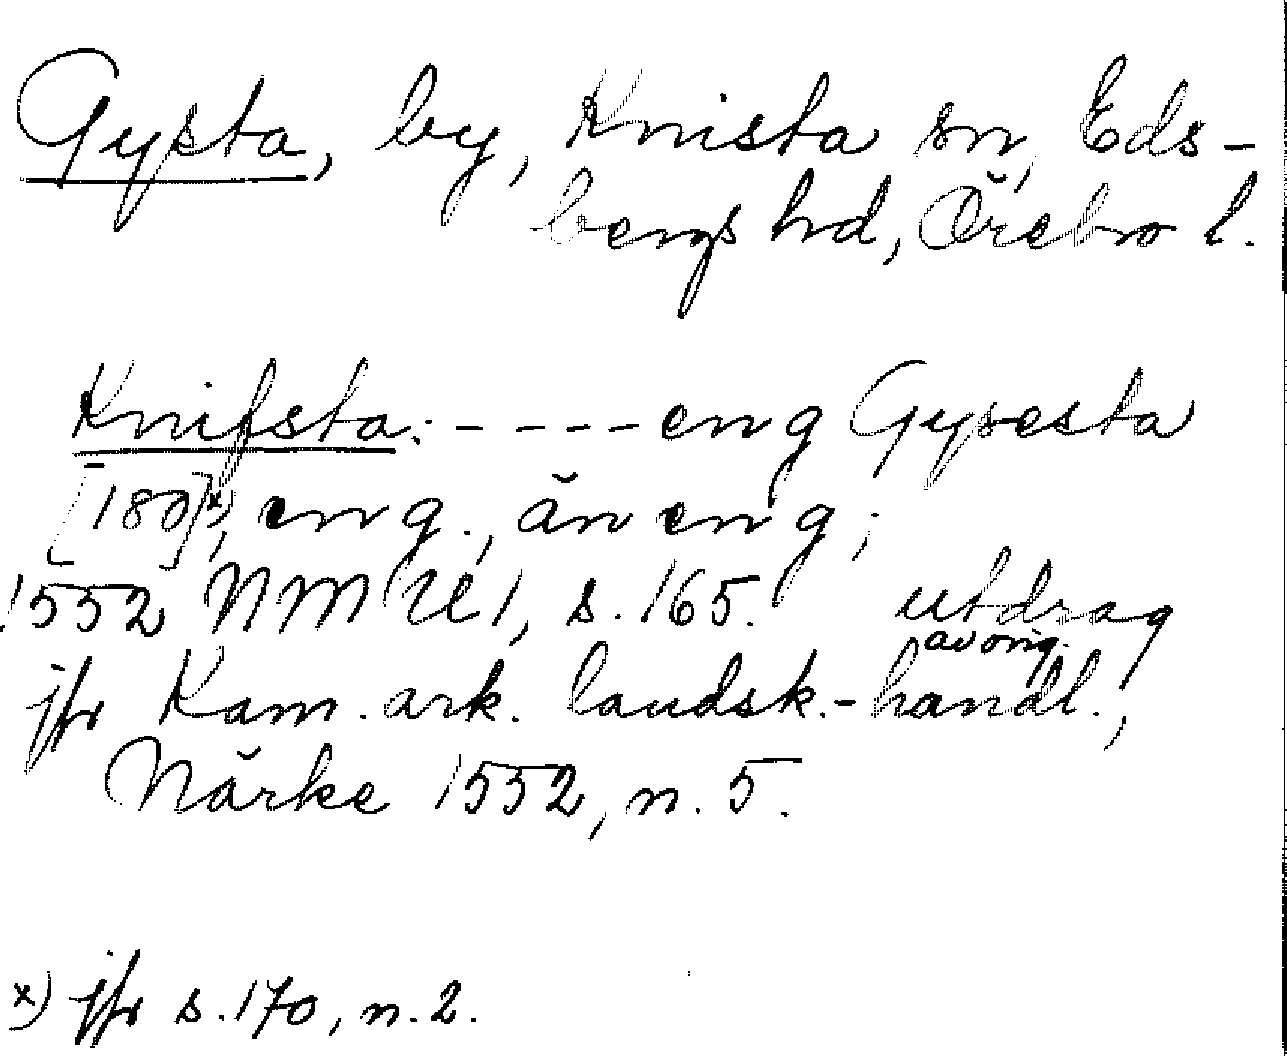 Gysta, by, Knista sn, Eds-
bergs hd, Örebro l.
Knifsta: - - - - eng Gysesta
[180]x), eng., än eng;
1552 NMU 1, s. 165. utdrag
av orig.
jfr Kam. ark. landsk.-handl.,
Närke 1552, n. 5.
x) jfr s. 170, n. 2.